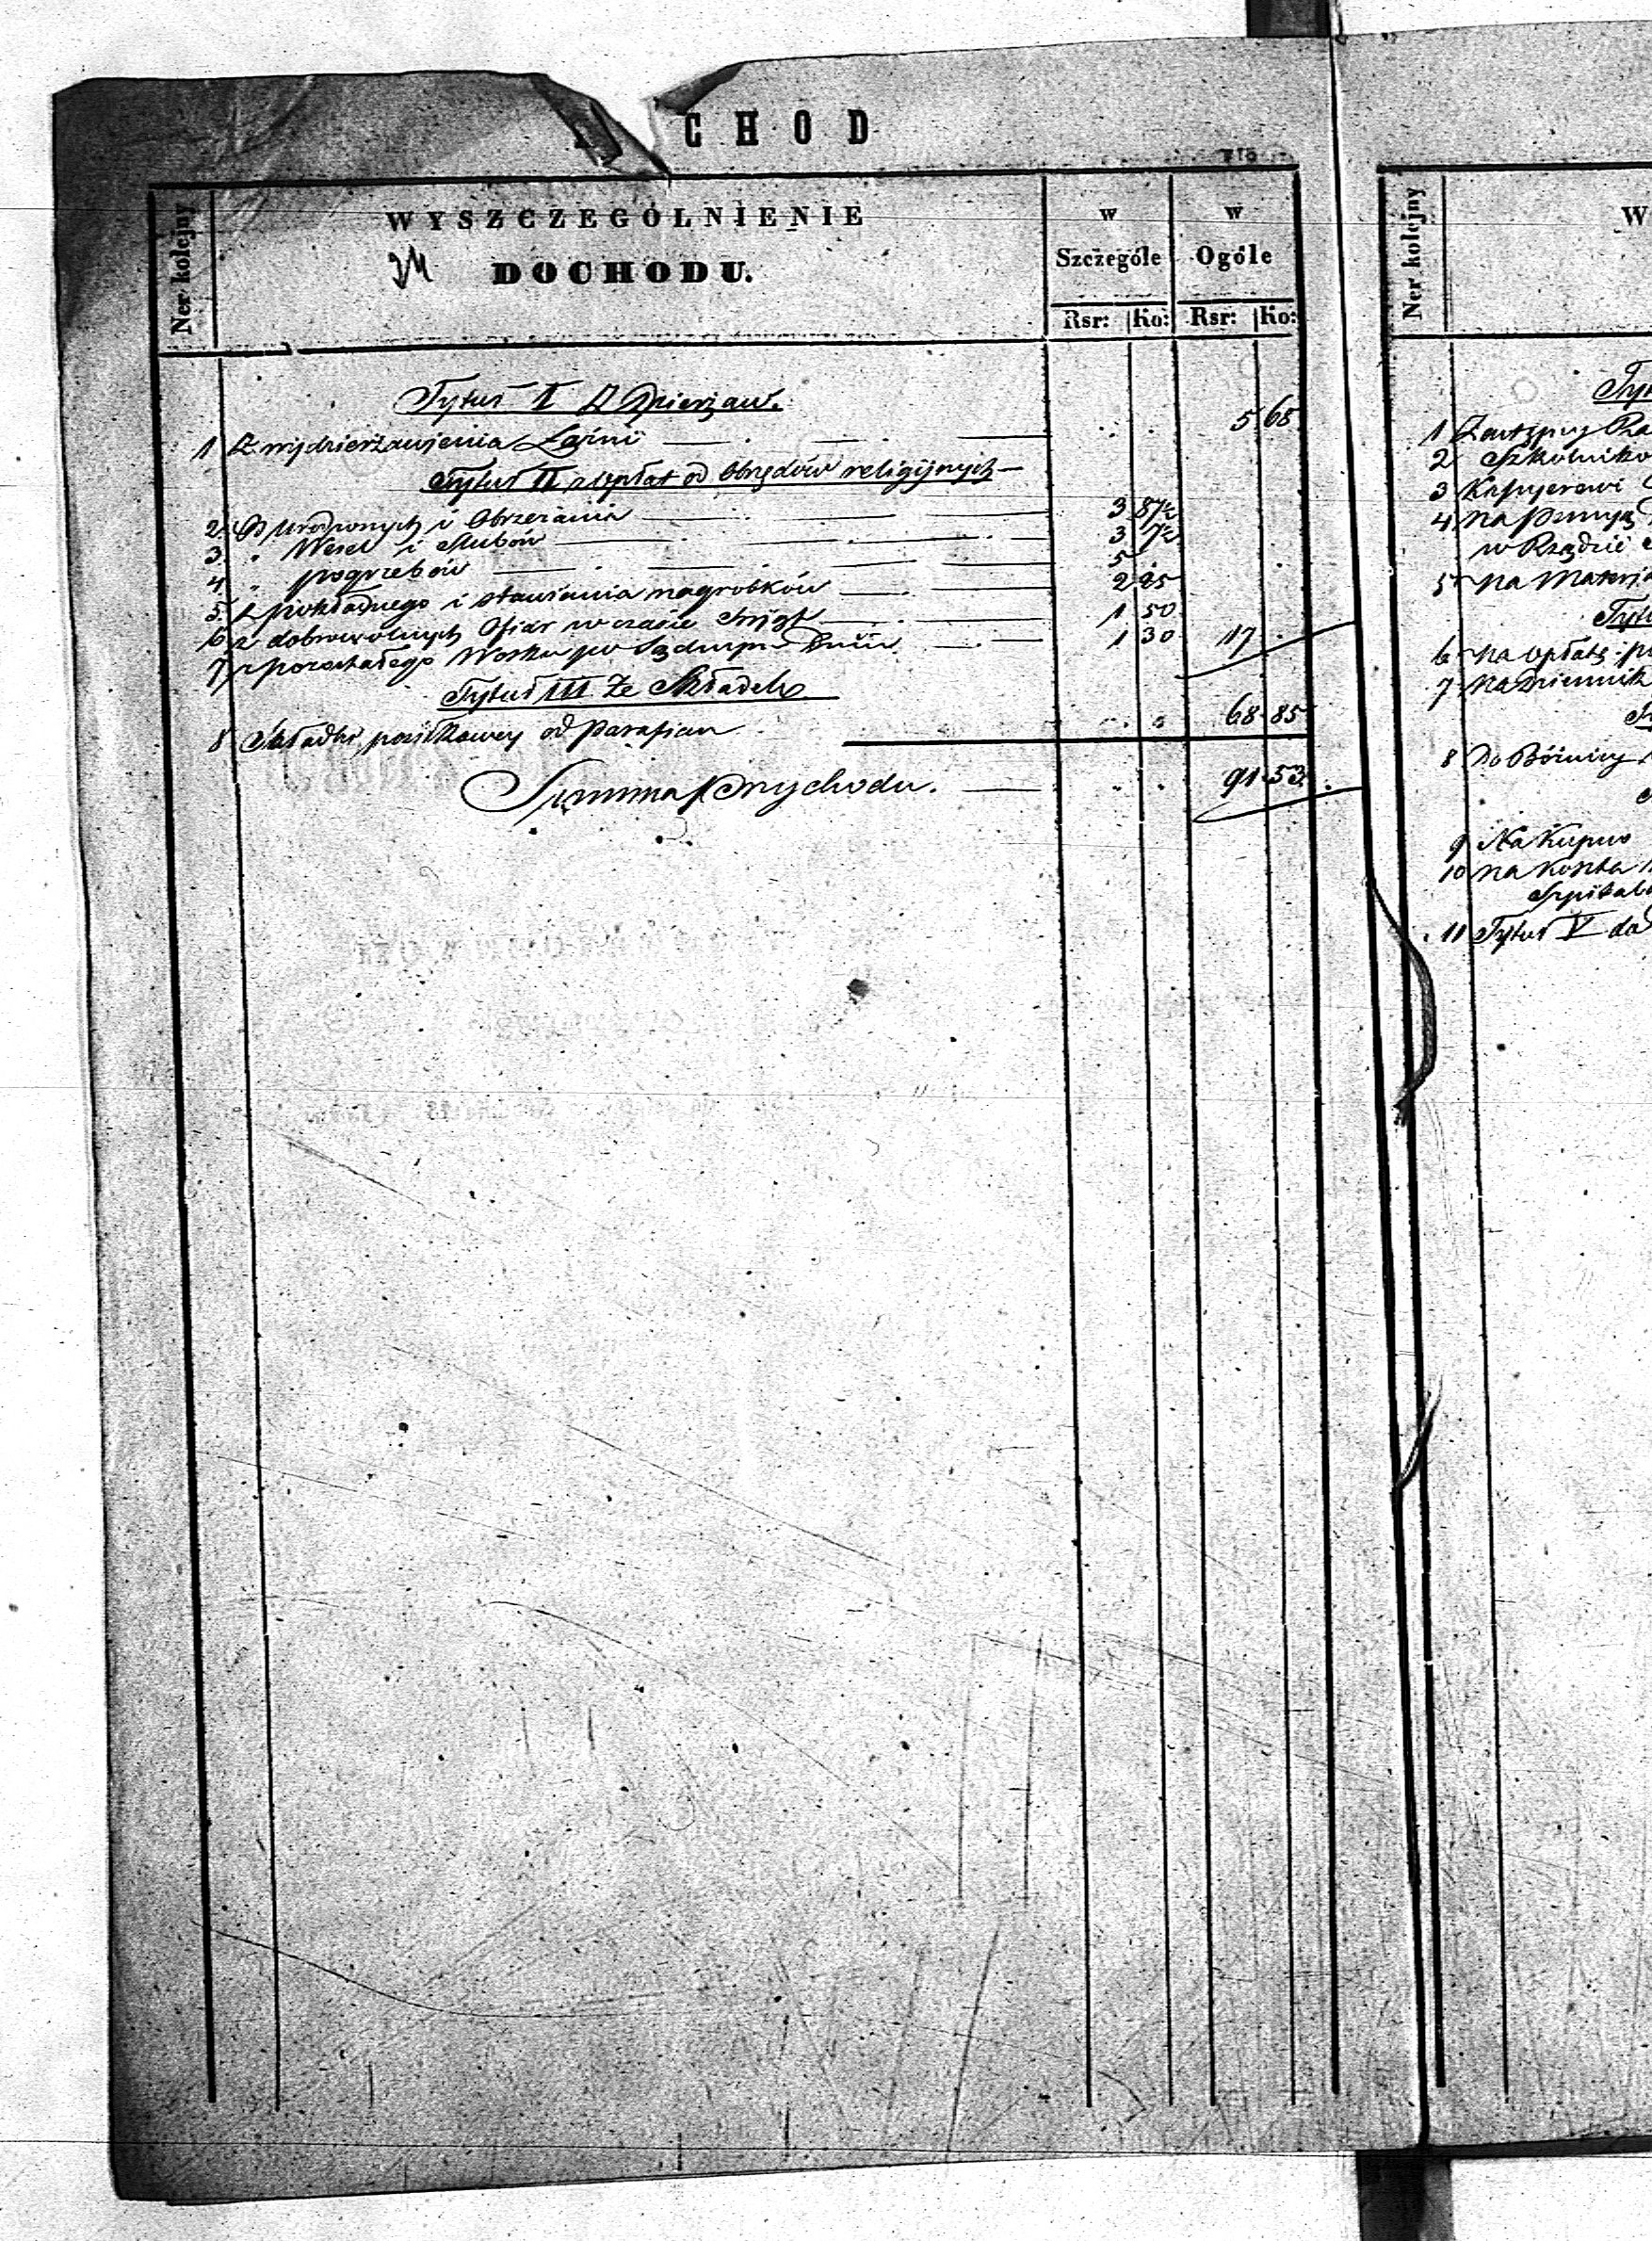 CHOD
Ner kolejny
WYSZCZEGÓLNIENIE
DOCHODU.
w Szczególe
w Ogóle
Rsr: Ko: Rsr: Ko:
Tytuł I Z Dzierżaw.
1 Z wydzierżawienia Łaźni 5 68
Tytuł II z opłat od Obrzędów religijnych
2 Od Urodzonych i Obrzezania 3 87½
3. " Wesel i Ślubów 3 7½
4 " pogrzebów 5
5. Z pokładnego i stawiania nagrobków 2 25
6 z dobrowolnych Ofiar w czasie Świąt 1 50
7 z pozostałego Wosku po Sądnym Dniu 1 30 17
Tytuł III Ze Składek
8 Składki posiłkowey od Parafian 68 85
Summa Przychodu. 91 53
Ner kolejny
W
1 Zastępcy
2 Szkolniko
3 Kassyerowi
4 na
w Rządzie
5 na Materja
6 na opłatę
7 na dziennik
8 Do Bóżnicy
9 Na Kupno
10 na koszta
Szpitala
11 Tytuł V do